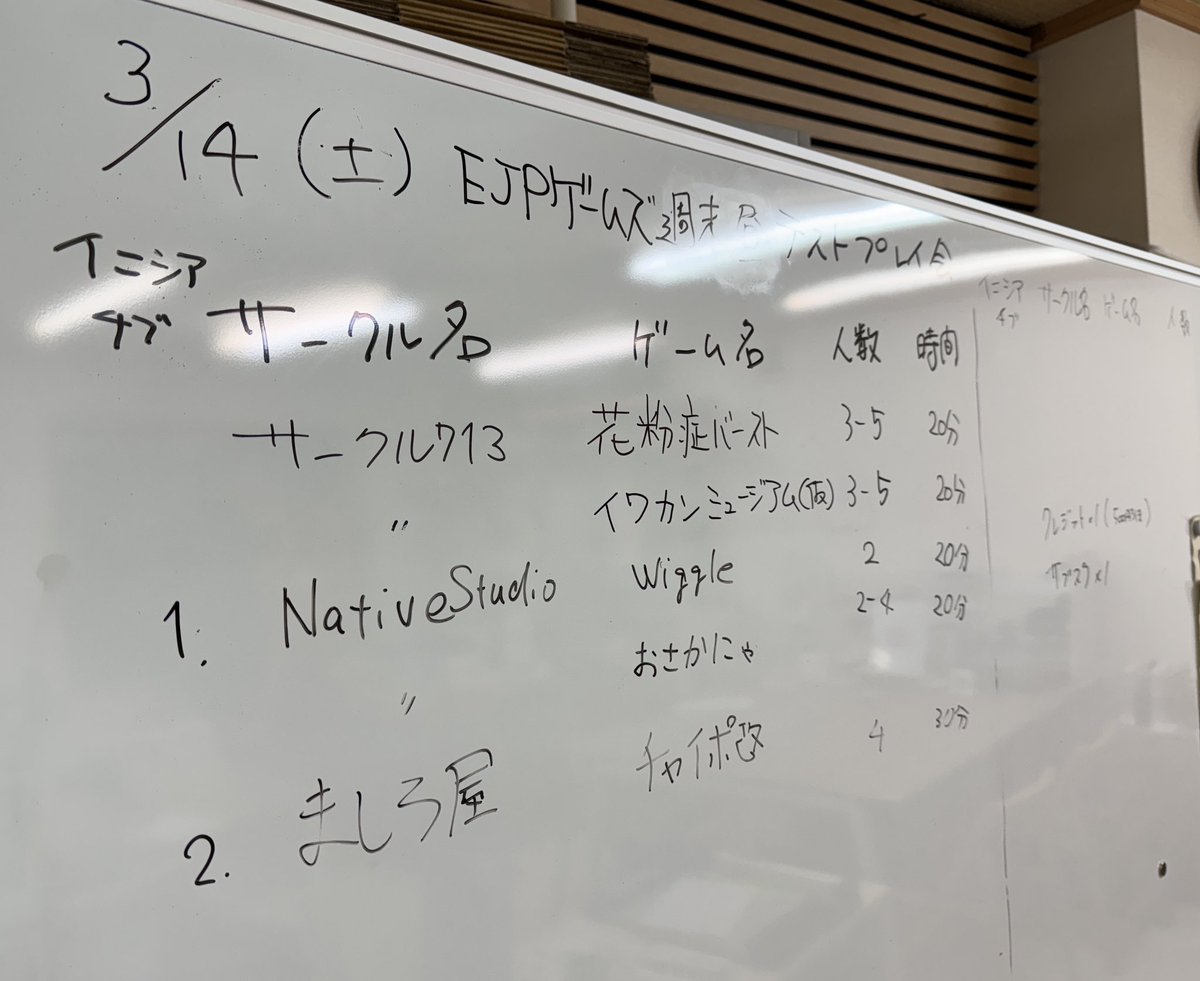 3/14 (土) EJPゲームズ週末 昼テストプレイ会
イニシアチブ サークル名 ゲーム名 人数 時間
サークル713 花粉症バースト 3-5 20分
〃 イワカンミュージアム(仮) 3-5 20分
1. NativeStudio Wiggle 2 20分
〃 おさかにゃ 2-4 20分
2. ましろ屋 チャイポ改 4 30分
イニシアチブ サークル名 ゲーム名 人数
クレジット×1
サブスク×1